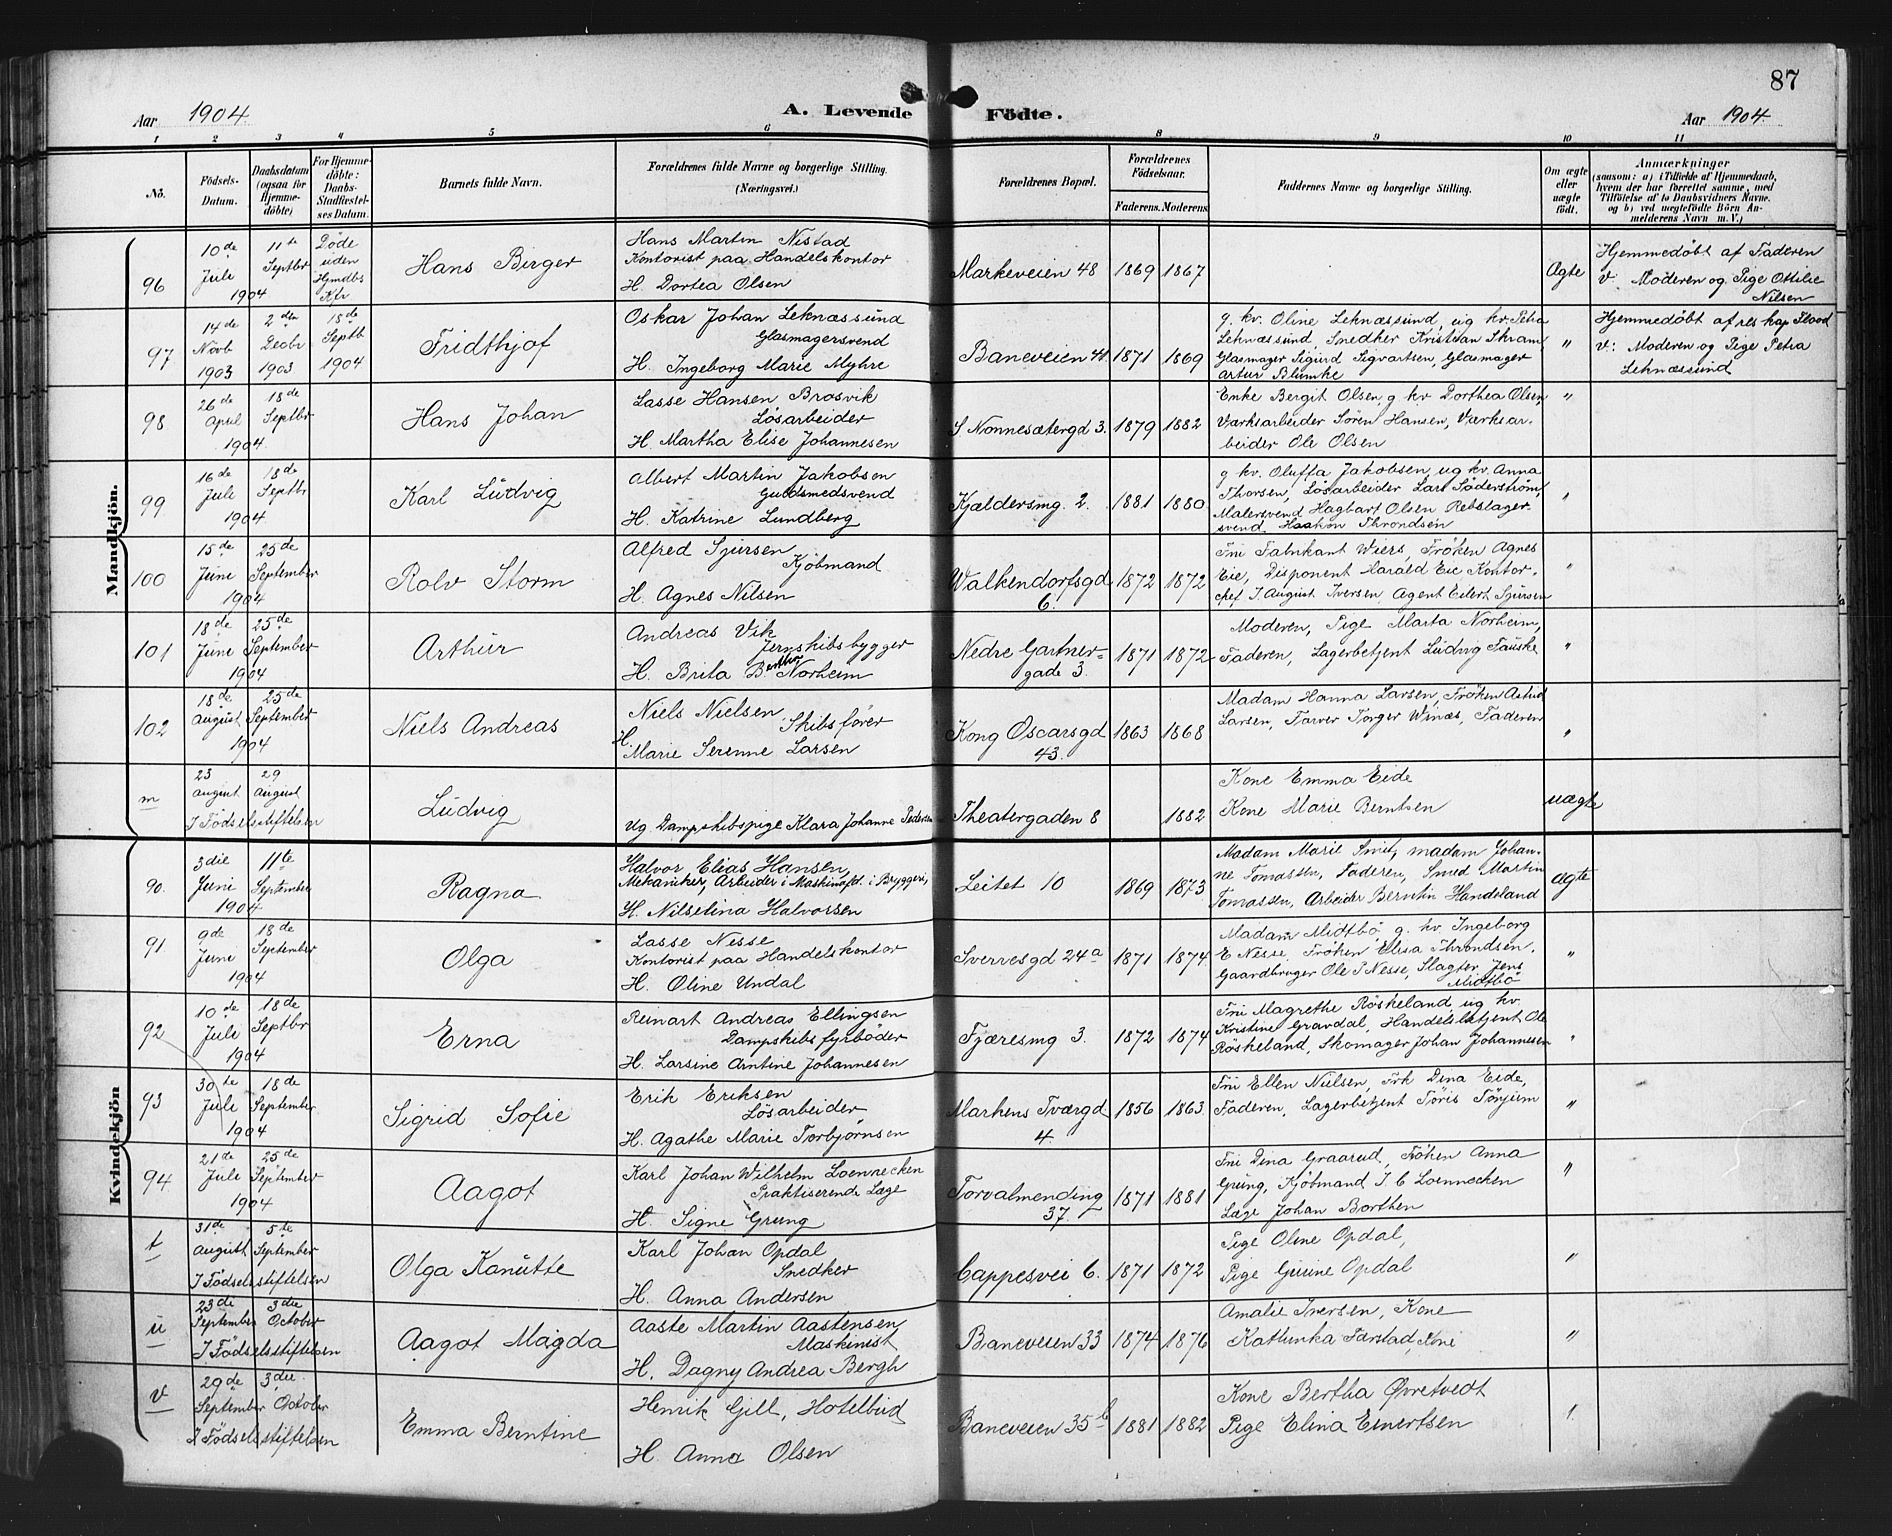 87
Aar 1904.
A. Levende Födte.
Aar 1904.
1 2 3 4 5 6 8 9 10 11
No.
Födsels-Datum.
Daabsdatum (ogsaa for Hjemme-döbte)
For Hjemme-döbte: Daabs-Stadfæstel-ses Datum.
Barnets fulde Navn.
Forældrenes fulde Navne og borgerlige Stilling.
(Næringsvei.)
Forældrenes Bopæl.
Forældrenes Födselsaar.
Faderens. Moderens.
Faddernes Navne og borgerlige Stilling.
Om ægte eller uægte födt.
Anmærkninger
(saasom: a) i Tilfælde af Hjemmedaab,
hvem der har forrettet samme, med
Tilföielse af to Daabsvidners Navne.
og b) ved uægtefödte Börn An-
melderens Navn m. V.)
Mandkjön.
96 10de Juli 1904 11te Septbr Døde uden Hjmdbs Kfr Hans Birger
Hans Martin Nistad
Kontorist paa Handelskontor
H. Dortea Olsen
Markeveien 48 1869 1867 Ægte
Hjemmedøbt af Faderen
v. Moderen og Pige Ottilie
Nilsen
97 14de Novb 1903 2den Decbr 1903 18de Septb 1904 Fridthjof
Oskar Johan Leknæssund
Glasmagersvend
H. Ingeborg Marie Myhre
Baneveien 41 1871 1869
g. kv. Oline Leknæssund, ug kv. Petra
Leknæssund, Snedker Kristian Skram,
Glasmager Sigurd Sigvartsen, Glasmager
Artur Blumke "
Hjemmedøbt af res. kap Flood
v: Moderen og Pige Petra
Leknæssund
98 26de April 1904. 18de Septbr Hans Johan
Lasse Hansen Brosvik
Løsarbeider
H. Martha Elise Johannesen
S Nonnesætergd 3. 1879 1882
Enke Bergit Olsen, g kv Dorthea Olsen,
Værksarbeider Sören Hansen, Værksar-
beider Ole Olsen "
99 16de Juli 1904 18de Septbr Karl Ludvig
Albert Martin Jakobsen
Guldsmedsvend
H. Katrine Lundberg
Kjeldersmg. 2. 1881 1880
g kv. Oluffa Jakobsen, ug kv. Anna
Thorsen, Løsarbeider Lars Söderström,
Malersvend Hagbart Olsen Rebslager
svend Haakon Throndsen "
100 15de Juni 1904 25de September Rolv Storm
Alfred Sjursen
Kjöbmand
H. Agnes Nilsen
Walkendorfsgd 6. 1872 1872
Fru Fabrikant Wiers, Frøken Agnes
Eie, Disponent Harald Eie Kontor-
chef J. August Iversen, Agent Eilert Sjursen "
101 18de Juni 1904 25de September Arthur
Andreas Vik
Jernskibsbygger
H. Brita Bertha Norheim
Nedre Gartner-
gade 3. 1871 1872
Moderen, Pige Marta Norheim,
Faderen, Lagerbetjent Ludvig Fauske "
102 18de August 1904 25de September Niels Andreas
Niels Nielsen
Skibsfører
H. Marie Serenne Larsen
Kong Oscarsgd
43. 1863 1868
Madam Hanna Larsen, Frøken Astrid
Larsen, Farver Torger Winæs, Faderen "
m 23 August 29 August I Fødselsstiftelsen Ludvig
Ug Dampskibspige Klara Johanne Pedersen
Theatergaden 8 1882
Kone Emma Eide
Kone Marie Berntsen uægte
Kvindekjön
90. 3die Juni 1904 11te September Ragna
Halvor Elias Hansen,
Mekaniker, Arbeider i Maskinafd. i Bryggeri,
H. Nilsetina Halvorsen
Leitet 10 1869 1873
Madam Marie Smit, madam Johan-
ne Tomassen, Faderen, Smed Martin
Tomassen, Arbeider Berntin Handeland Ægte
91 9de Juni 1904 18de September Olga
Lasse Nesse
Kontorist paa Handelskontor
H. Oline Undal
Sverresgd 24a 1871 1874
Madam Midtbö g. kv Ingeborg
E Nesse, Frøken Elisa Throndsen,
Gaardbruger Ole S Nesse, Slagter Jens
Midtbö "
92 10de Juli 1904 18de Septbr Erna
Reinart Andreas Ellingsen
Dampskibsfyrbøder
H. Larsine Arntine Johannesen
Fjæresmg 3. 1872 1874
Fru Magrethe Röskeland, ug kv.
Kristine Gravdal, Handelsbetjent Ole
Röskeland, Skomager Johan Johannesen "
93 30te Juli 1904 18de September Sigrid Sofie
Erik Eriksen
Løsarbeider
H. Agathe Marie Torbjørnsen
Markens Tværgd
4. 1856 1863
Fru Ellen Nielsen, Frk Dina Eide,
Faderen, Lagerbetjent Töris Tönjum "
94 21de Juli 1904 25de September Aagot
Karl Johan Wilhelm Loennecken
Praktiserende Læge
H. Signe Grung
Torvalmending
37. 1871 1881
Fru Dina Graarud, Frøken Anna
Grung, Kjøbmand J. C Loennecken
Læge Johan Borthen "
t 31de August 5te September I Fødselsstiftelsen Olga Kanutte
Karl Johan Opdal
Snedker
H. Anna Andersen
Cappesvei 6. 1871 1872
Pige Oline Opdal,
Pige Gurine Opdal "
u 23de September 3die October I Fødselsstiftelsen Aagot Magda
Aaste Martin Aastensen
Maskinist
H. Dagny Andrea Bergh
Baneveien 33 1874 1876
Amalie Iversen, Kone
Kathinka Farstad, Kone "
v 29de September 3die October I Fødselsstiftelsen Emma Berntine
Henrik Gill, Hotelbud
H. Anna Olsen
Baneveien 35b 1881 1882
Kone Bertha Øvretvedt
Pige Elina Einertsen "